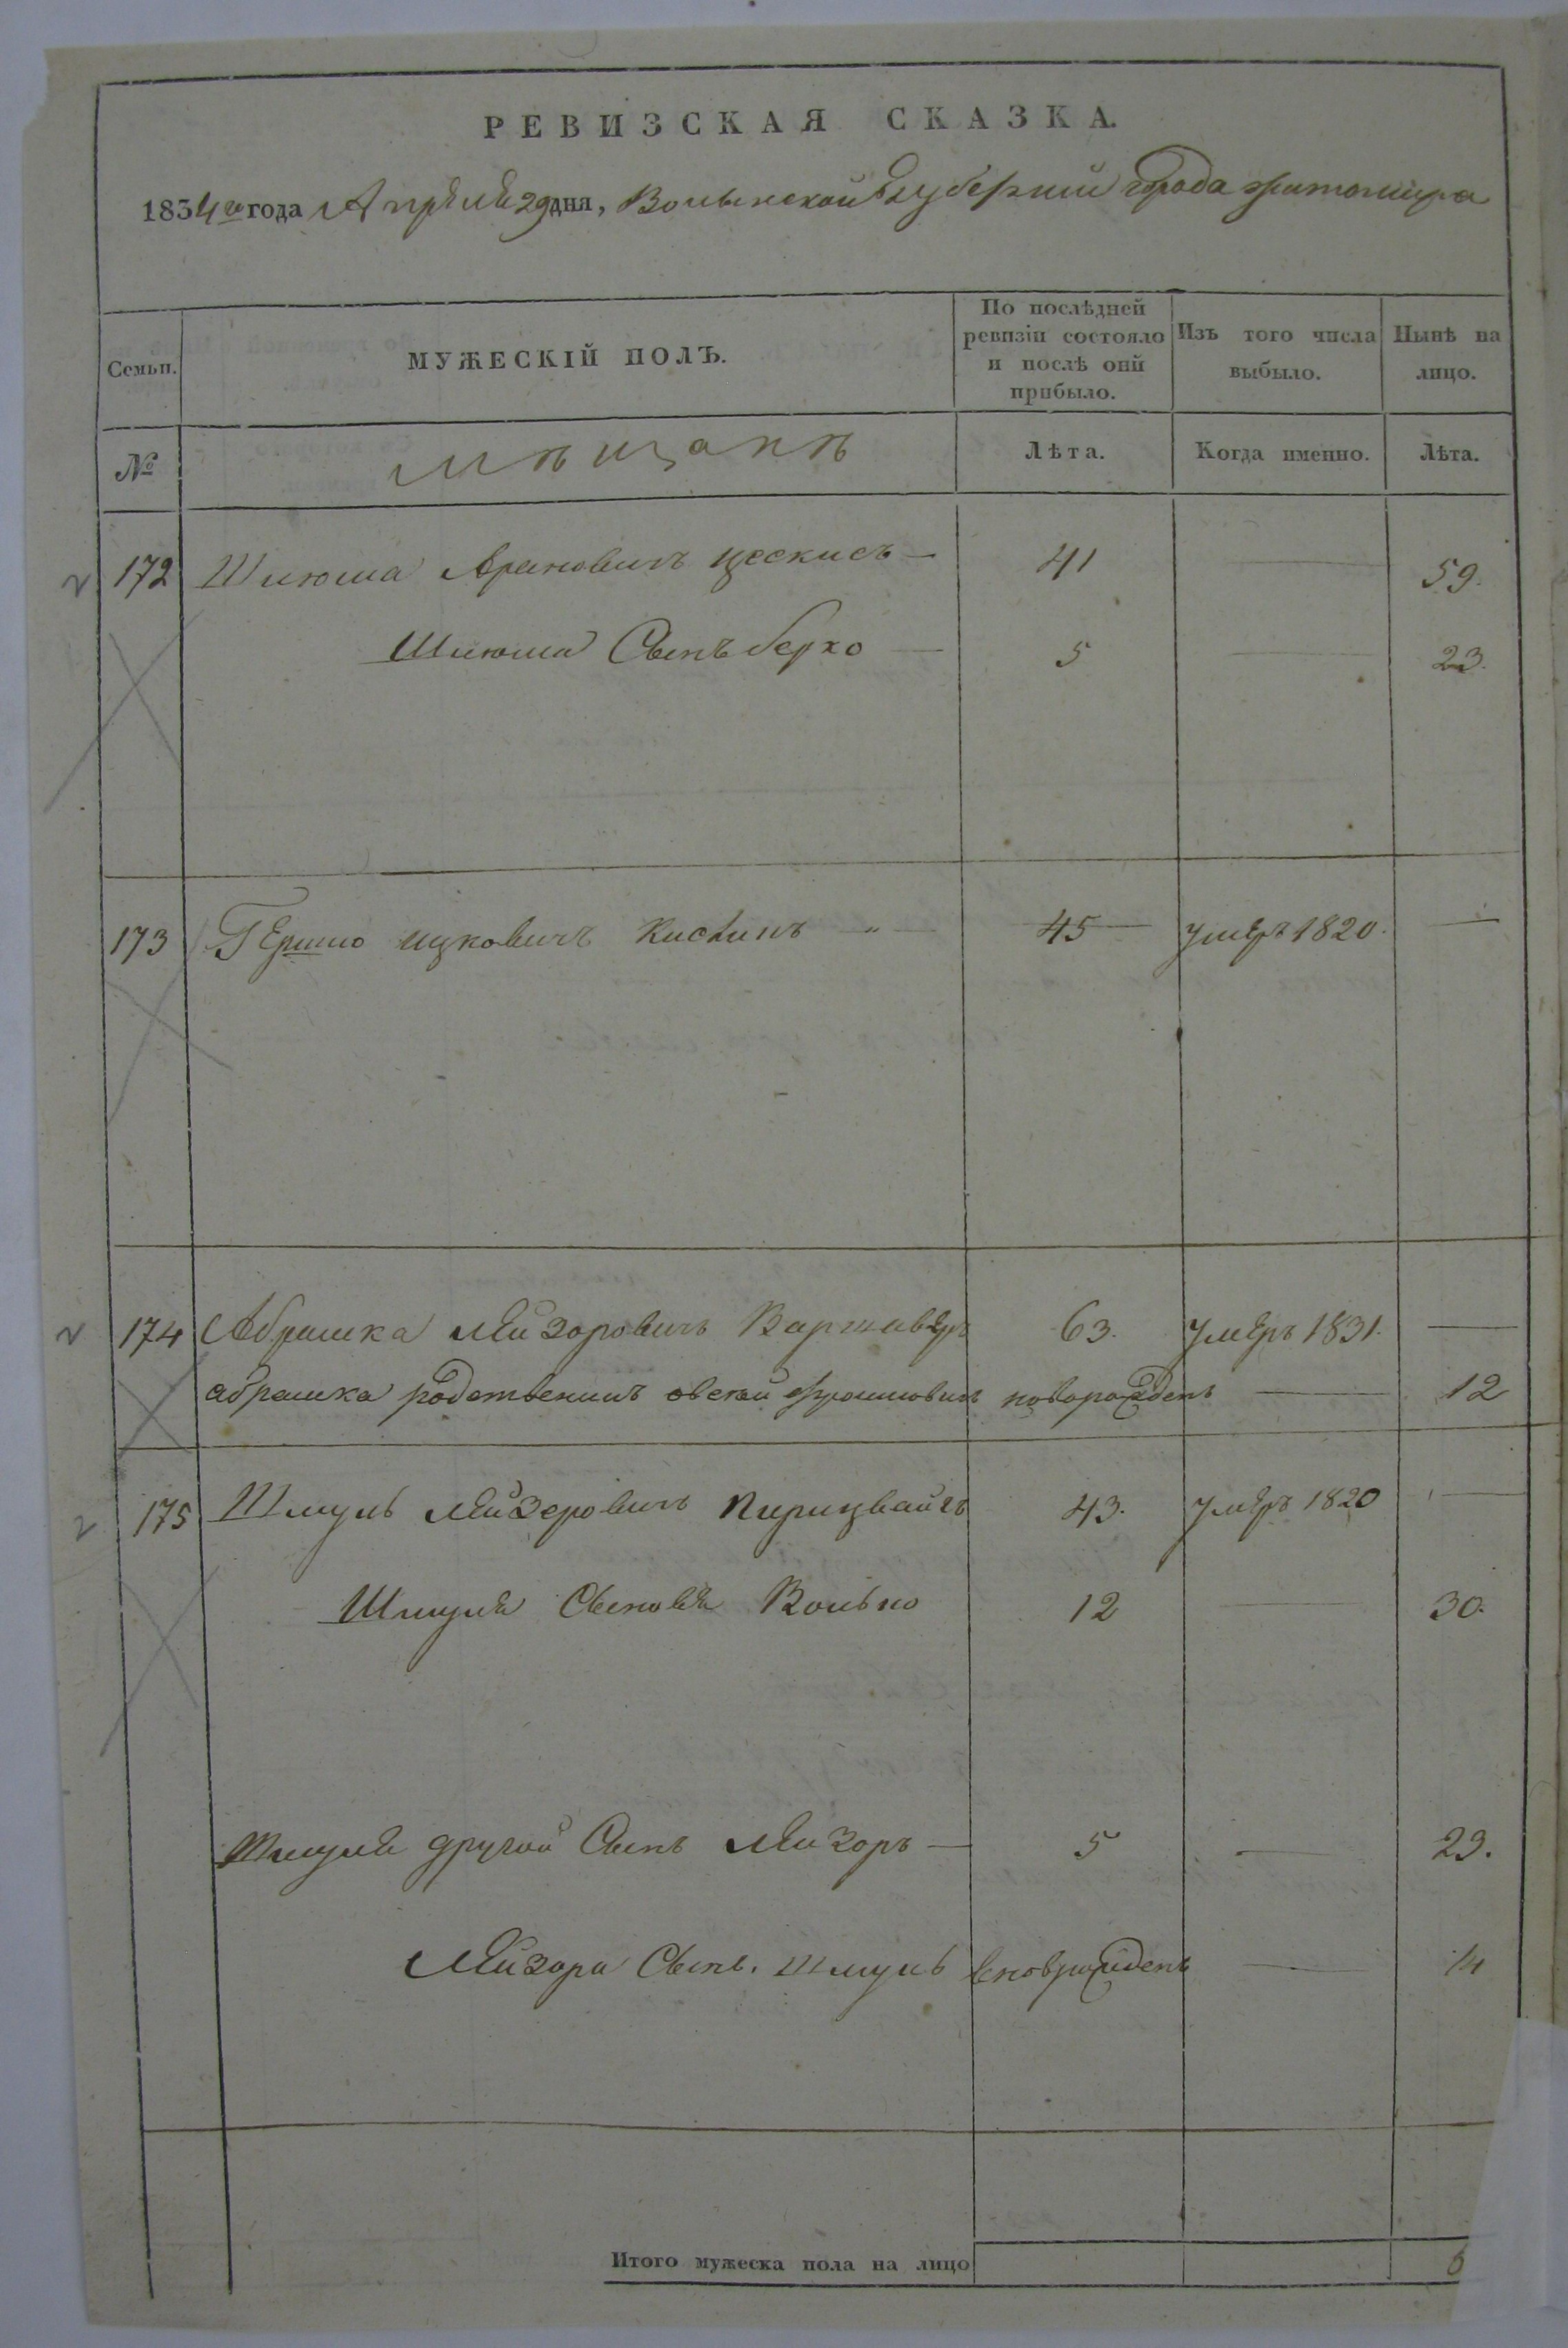 РЕВИЗСКАЯ СКАЗКА.
1834го года Апреля 29 дня, Волынской Губернии города Житомира
Семьи.
МУЖЕСКІЙ ПОЛЪ.
По послѣдней ревизіи состояло и послѣ оной прибыло.
Изъ того числа выбыло.
Нынѣ на лицо.
№
мѣщанѣ
Лѣта.
Когда именно.
Лѣта.
172 Шлюма Ароновичъ — 41 — 59.
Шлюма Сынъ берко — 5 — 23.
173 Гершко ицковичъ " — 45 — умеръ 1820. —
174 Абрамка Лейзоровичъ Варшаверъ 63. умеръ 1831. —
абрамка родственикъ новорожденъ — 12
175 Шмуль Лейзеровичъ 43. умеръ 1820 —
Шмуля Сыновья Волько 12 — 30.
Шмуля другой Сынъ Лейзоръ — 5 — 23.
Лейзора Сынъ. Шмуль — 14
Итого мужеска пола на лицо 6